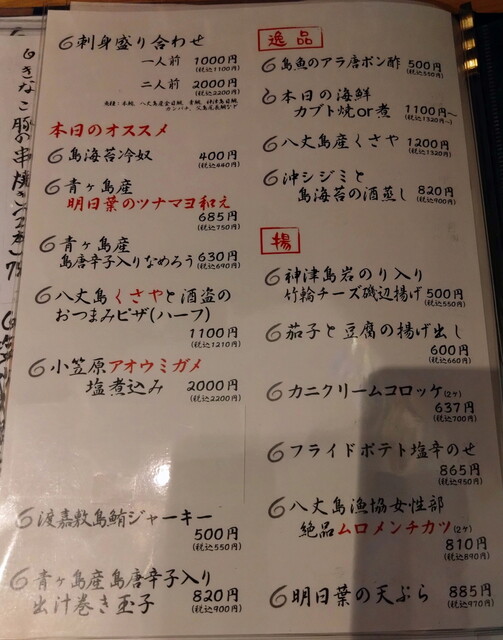 刺身盛り合わせ
一人前 1000円
(税込1100円)
二人前 2000円
(税込2200円)
本日のオススメ
島海苔冷奴 400円
(税込440円)
青ヶ島産
明日葉のツナマヨ和え
685円
(税込750円)
青ヶ島産
島唐辛子入りなめろう 630円
(税込690円)
八丈島くさやと酒盗の
おつまみピザ(ハーフ)
1100円
(税込1210円)
小笠原アオウミガメ
塩煮込み 2000円
(税込2200円)
渡嘉敷島鮪ジャーキー
500円
(税込550円)
青ヶ島産島唐辛子入り
出汁巻き玉子 820円
(税込900円)
逸品
島魚のアラ唐ポン酢 500円
(税込550円)
本日の海鮮
カブト焼or煮 1100円~
(税込1320円~)
八丈島産くさや 1200円
(税込1320円)
沖シジミと
島海苔の酒蒸し 820円
(税込900円)
揚
神津島岩のり入り
竹輪チーズ磯辺揚げ 500円
(税込550円)
茄子と豆腐の揚げ出し
600円
(税込660円)
カニクリームコロッケ(2ヶ)
637円
(税込700円)
フライドポテト塩辛のせ
865円
(税込950円)
八丈島漁協女性部
絶品ムロメンチカツ(2ヶ)
810円
(税込890円)
明日葉の天ぷら 885円
(税込970円)
きなこ豚の串焼き